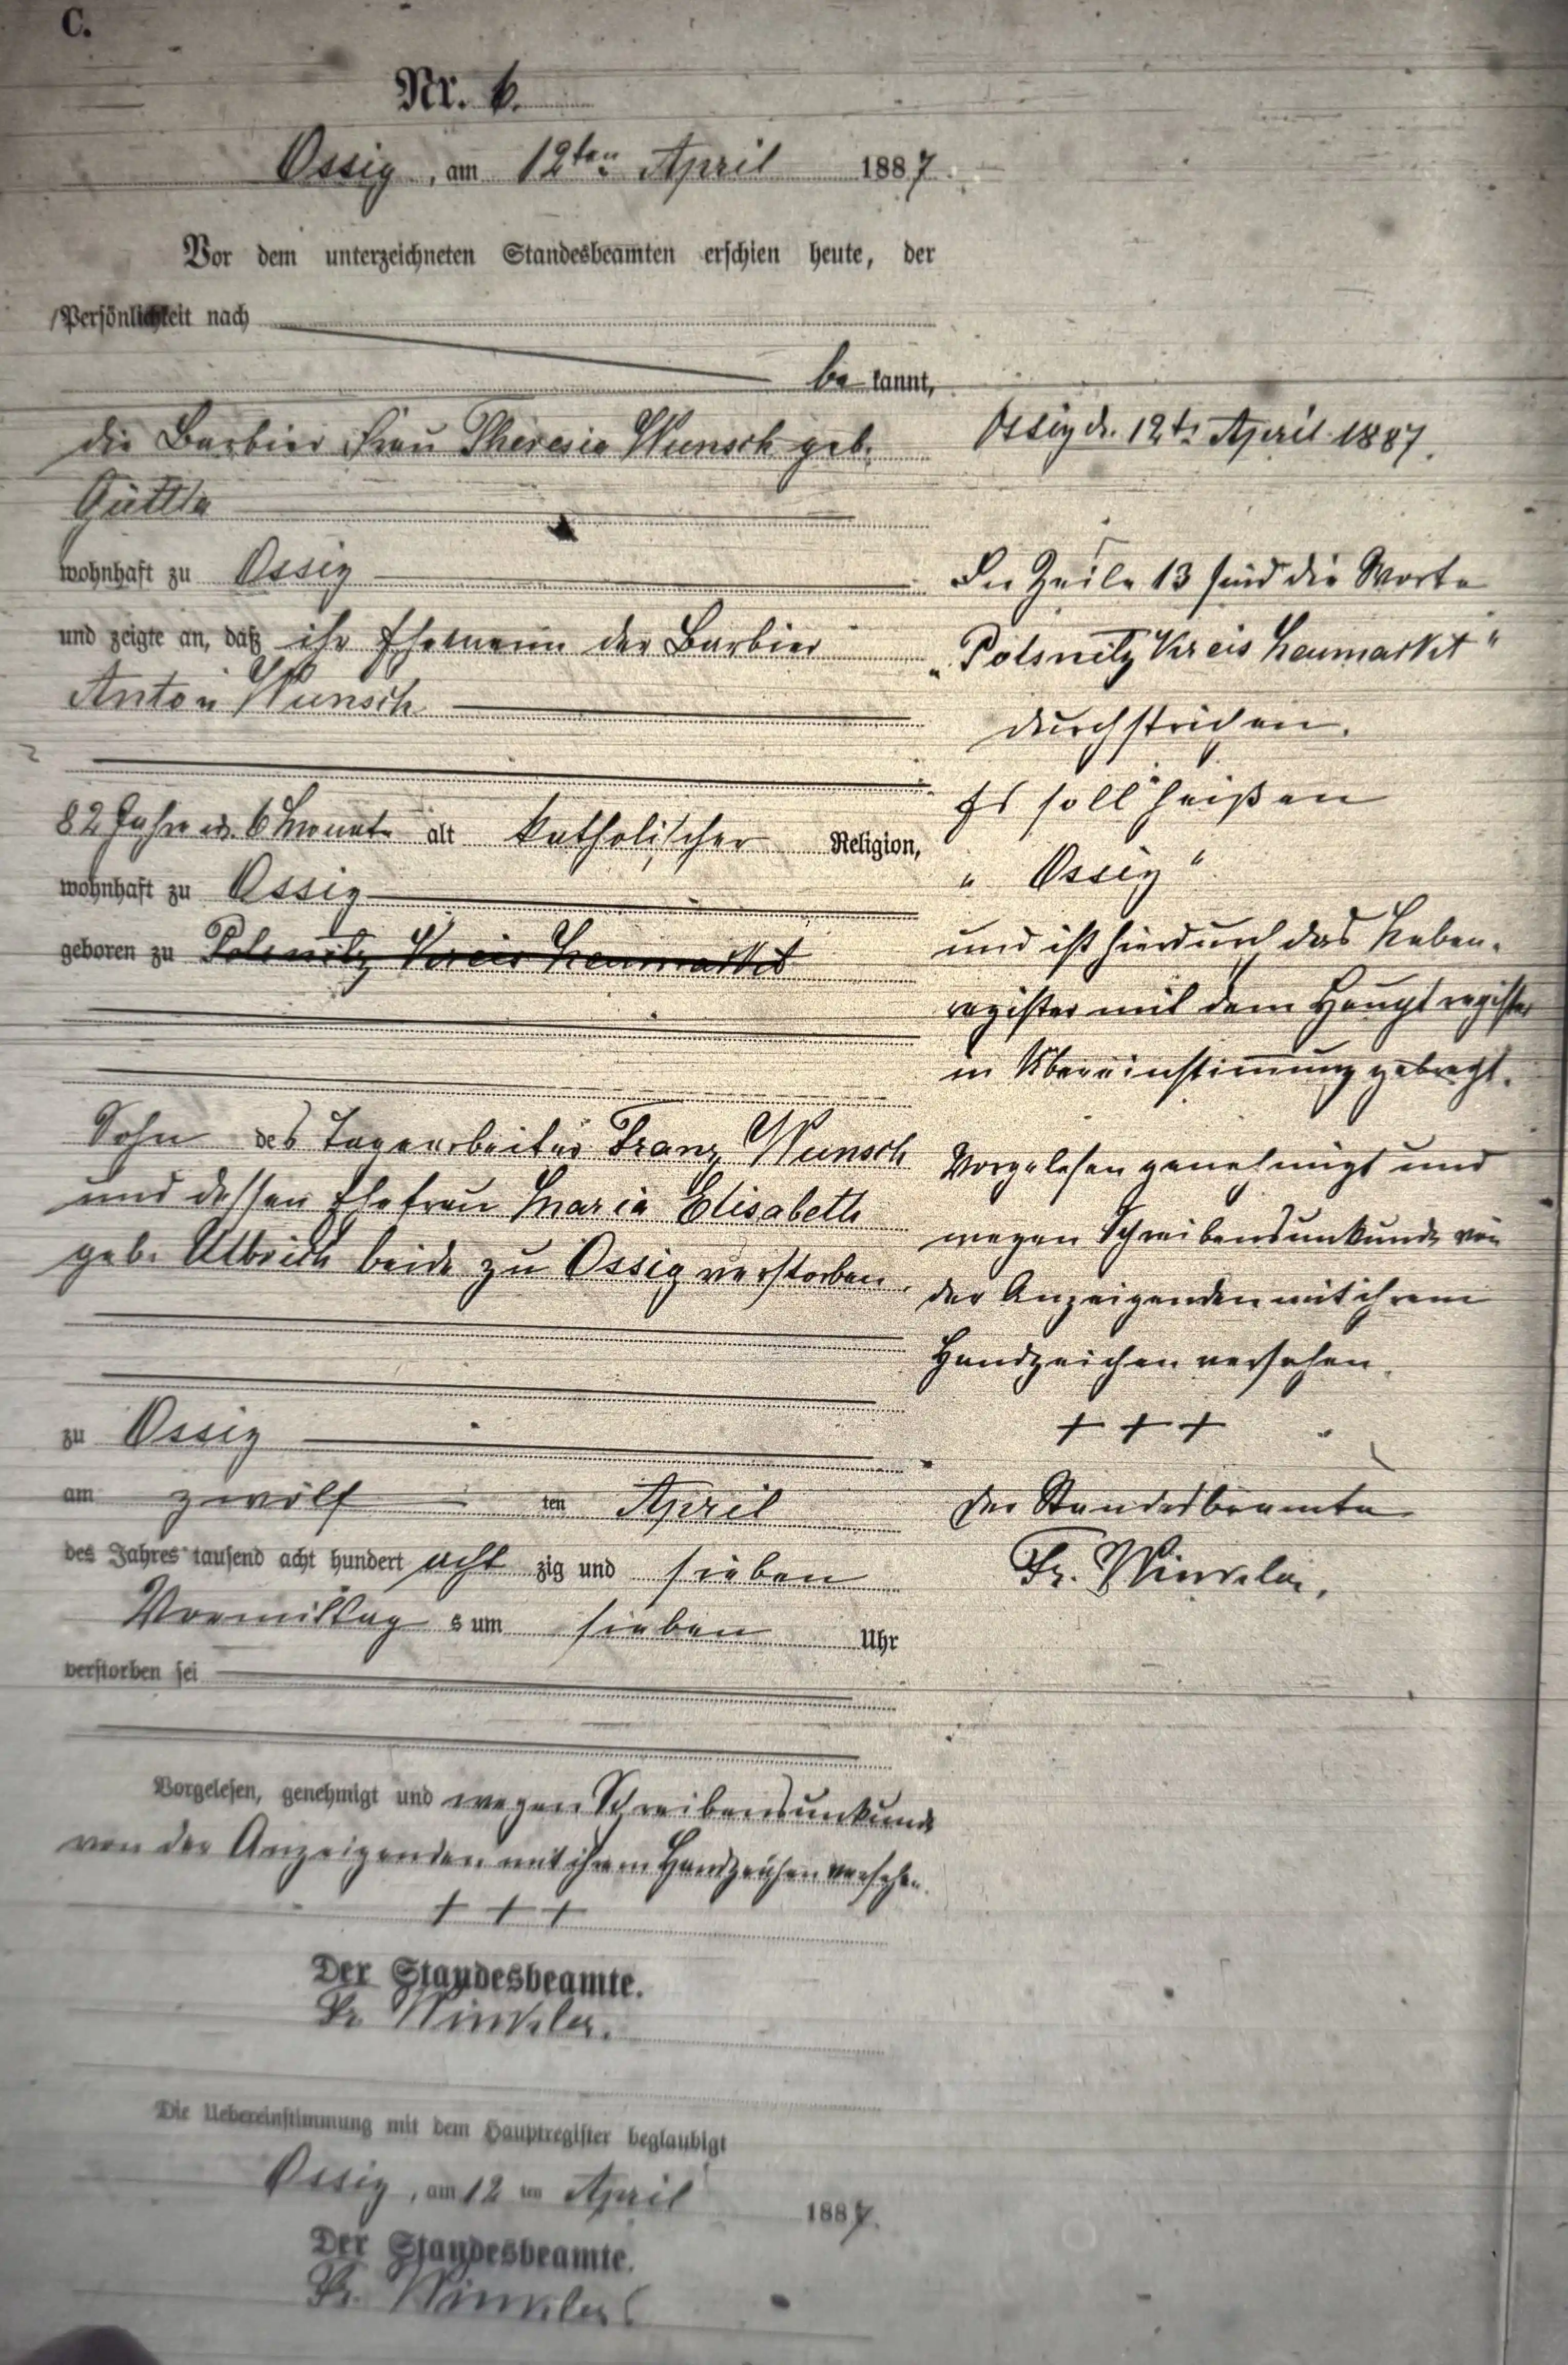 C.
Nr. 6.
Ossig, am 12ten April 1887.
Vor dem unterzeichneten Standesbeamten erschien heute, der
Persönlichkeit nach
be kannt,
die Barbier Frau Theresia Wunsch geb.
Güttle
wohnhaft zu Ossig
und zeigte an, daß ihr Ehemann der Barbier
Anton Wunsch
82 Jahr u. 6 Monate alt katholischer Religion,
wohnhaft zu Ossig
geboren zu Polsnitz Kreis Neumarkt
Sohn des Tagearbeiter Franz Wunsch
und dessen Ehefrau Maria Elisabeth
geb. Ulbrich beide zu Ossig verstorben.
zu Ossig
am zwölf ten April
des Jahres tausend acht hundert acht zig und sieben
Vormittag s um sieben Uhr
verstorben sei
Vorgelesen, genehmigt und wegen Schreibensunkunde
von der Anzeigenden mit ihrem Handzeichen versehen.
+ + +
Der Standesbeamte.
Fr. Winkler.
Die Uebereinstimmung mit dem Hauptregister beglaubigt
Ossig, am 12 ten April 1887.
Der Standesbeamte.
Fr. Winkler
Ossig d. 12t. April 1887.
In Zeile 13 sind die Worte
„Polsnitz Kreis Neumarkt"
durchstrichen.
Es soll heißen
„Ossig"
und ist hierdurch das Neben-
register mit dem Hauptregister
in Übereinstimmung gebracht.
Vorgelesen genehmigt und
wegen Schreibensunkunde von
der Anzeigenden mit ihrem
Handzeichen versehen.
+ + +
Der Standesbeamte
Fr. Winkler.